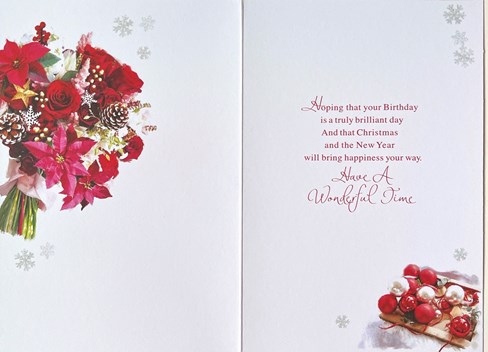 Hoping that your Birthday
is a truly brilliant day
And that Christmas
and the New Year
will bring happiness your way.
Have A
Wonderful Time